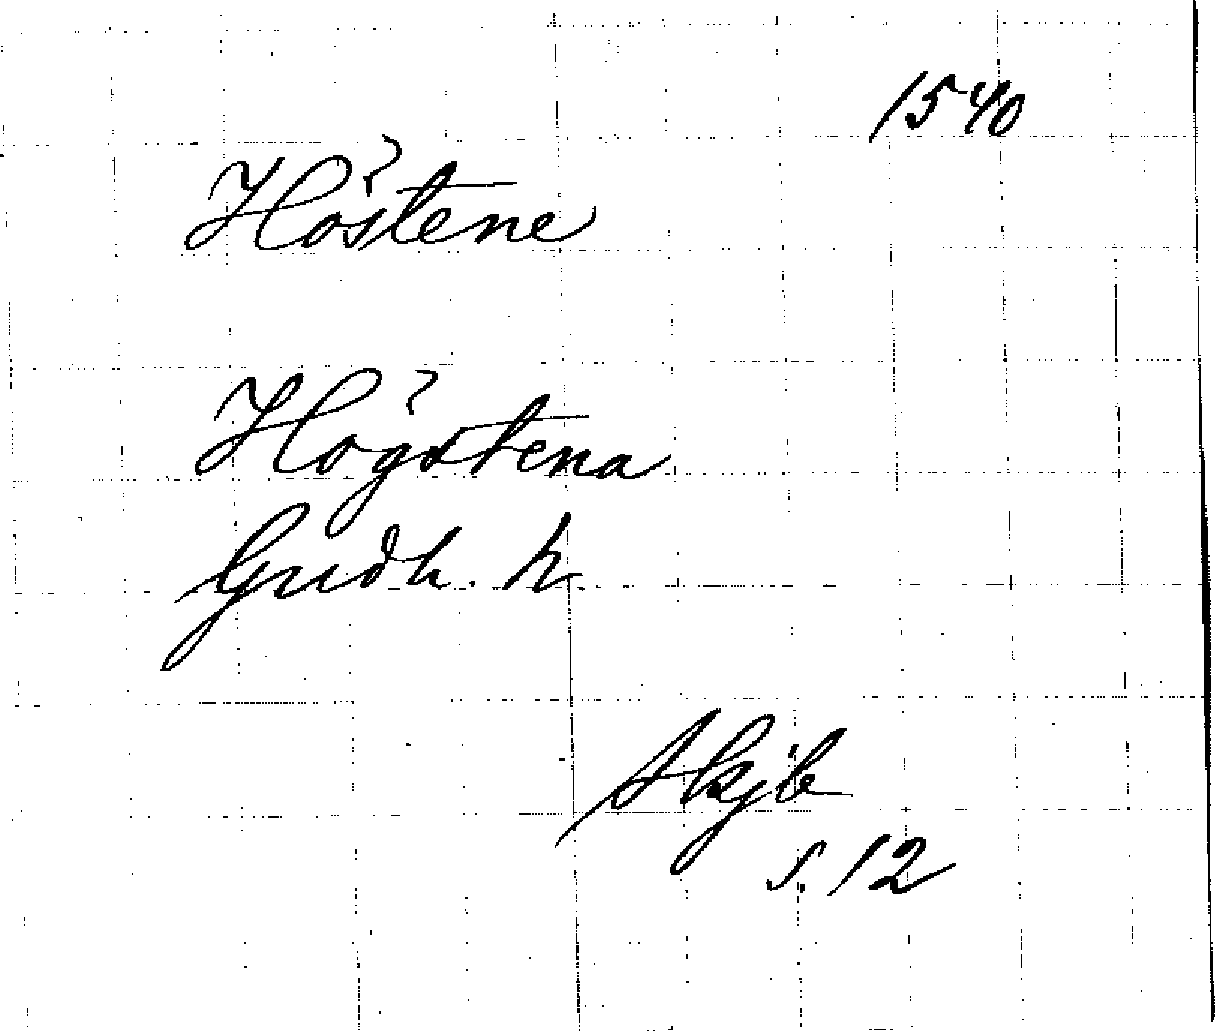 1540
Höstene
Högstena
Gudh. h.
Skjb
s. 12